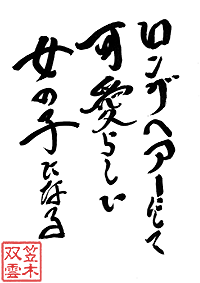 ロングヘアーにして
可愛らしい
女の子になる
笠木
双雲